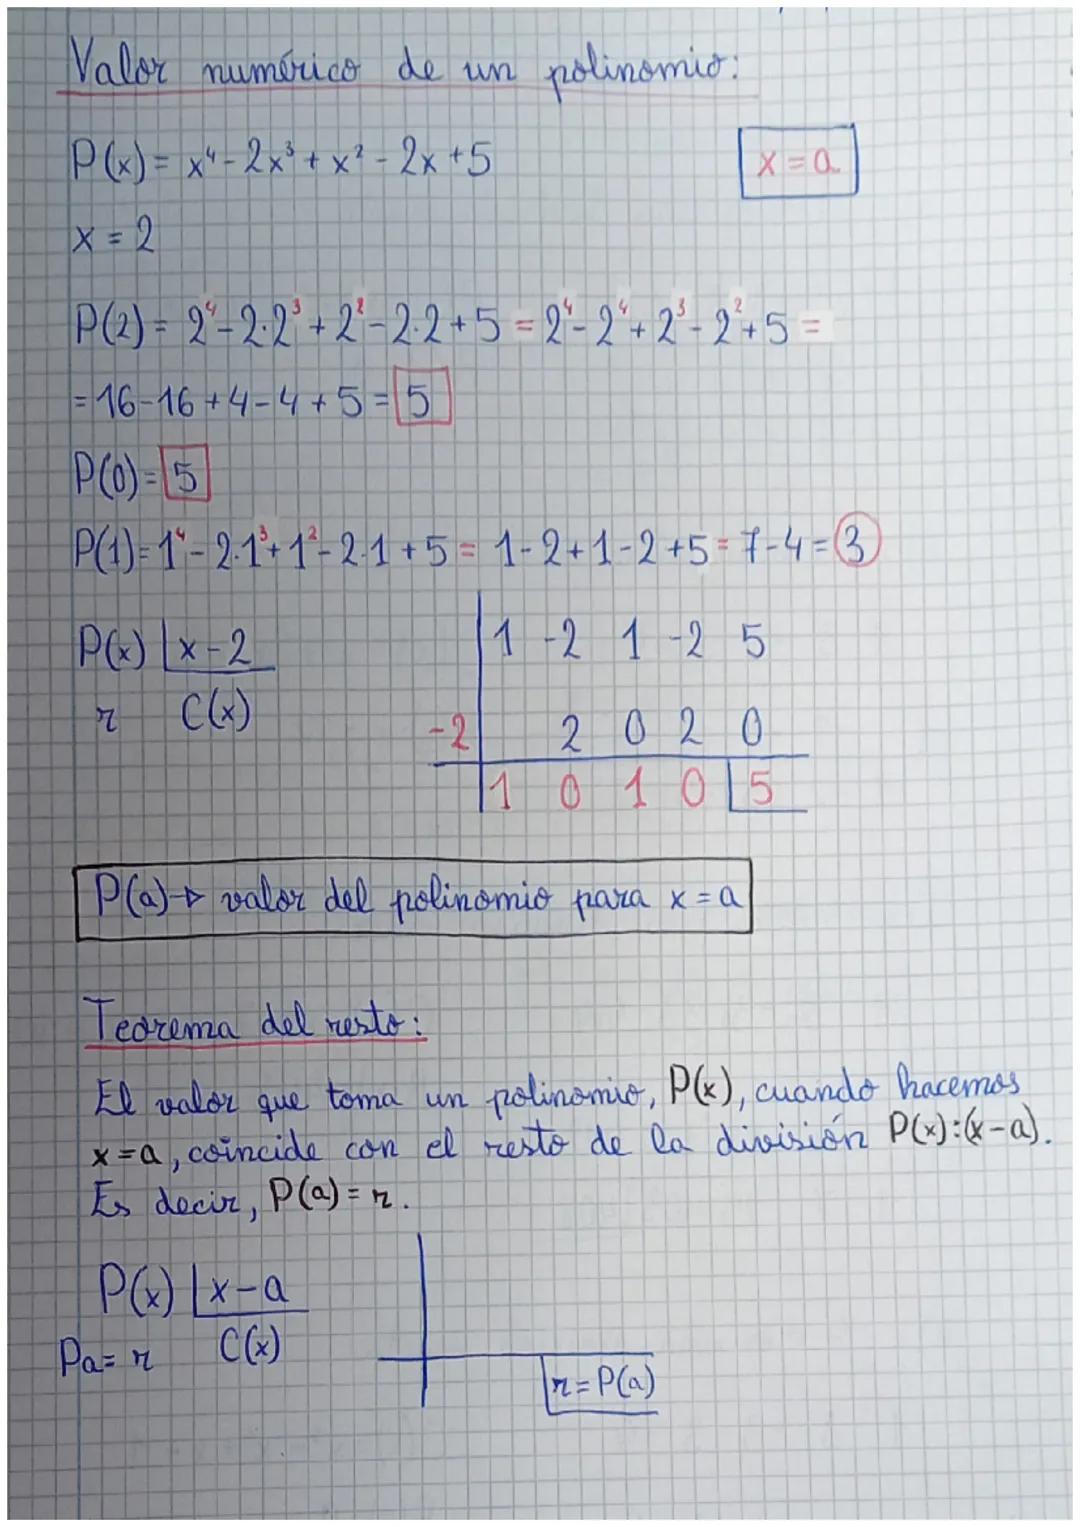 Valor numérico de un polinomio:
P(x) = x⁴ - 2x³ + x² - 2x + 5
x = a
x = 2
P(2) = 2⁴ - 2·2³ + 2² - 2·2 + 5 = 2⁴ - 2⁴ + 2³ - 2² + 5 =
= 16 - 16 + 4 - 4 + 5 = 5
P(0) = 5
P(1) = 1⁴ - 2·1³ + 1² - 2·1 + 5 = 1 - 2 + 1 - 2 + 5 = 7 - 4 = 3
P(x) | x - 2
r C(x)
1 -2 1 -2 5
-2 2 0 2 0
1 0 1 0 | 5
P(a) → valor del polinomio para x = a
Teorema del resto:
El valor que toma un polinomio, P(x), cuando hacemos
x = a, coincide con el resto de la división P(x):(x-a).
Es decir, P(a) = r.
P(x) | x - a
Pa = r C(x)
r = P(a)